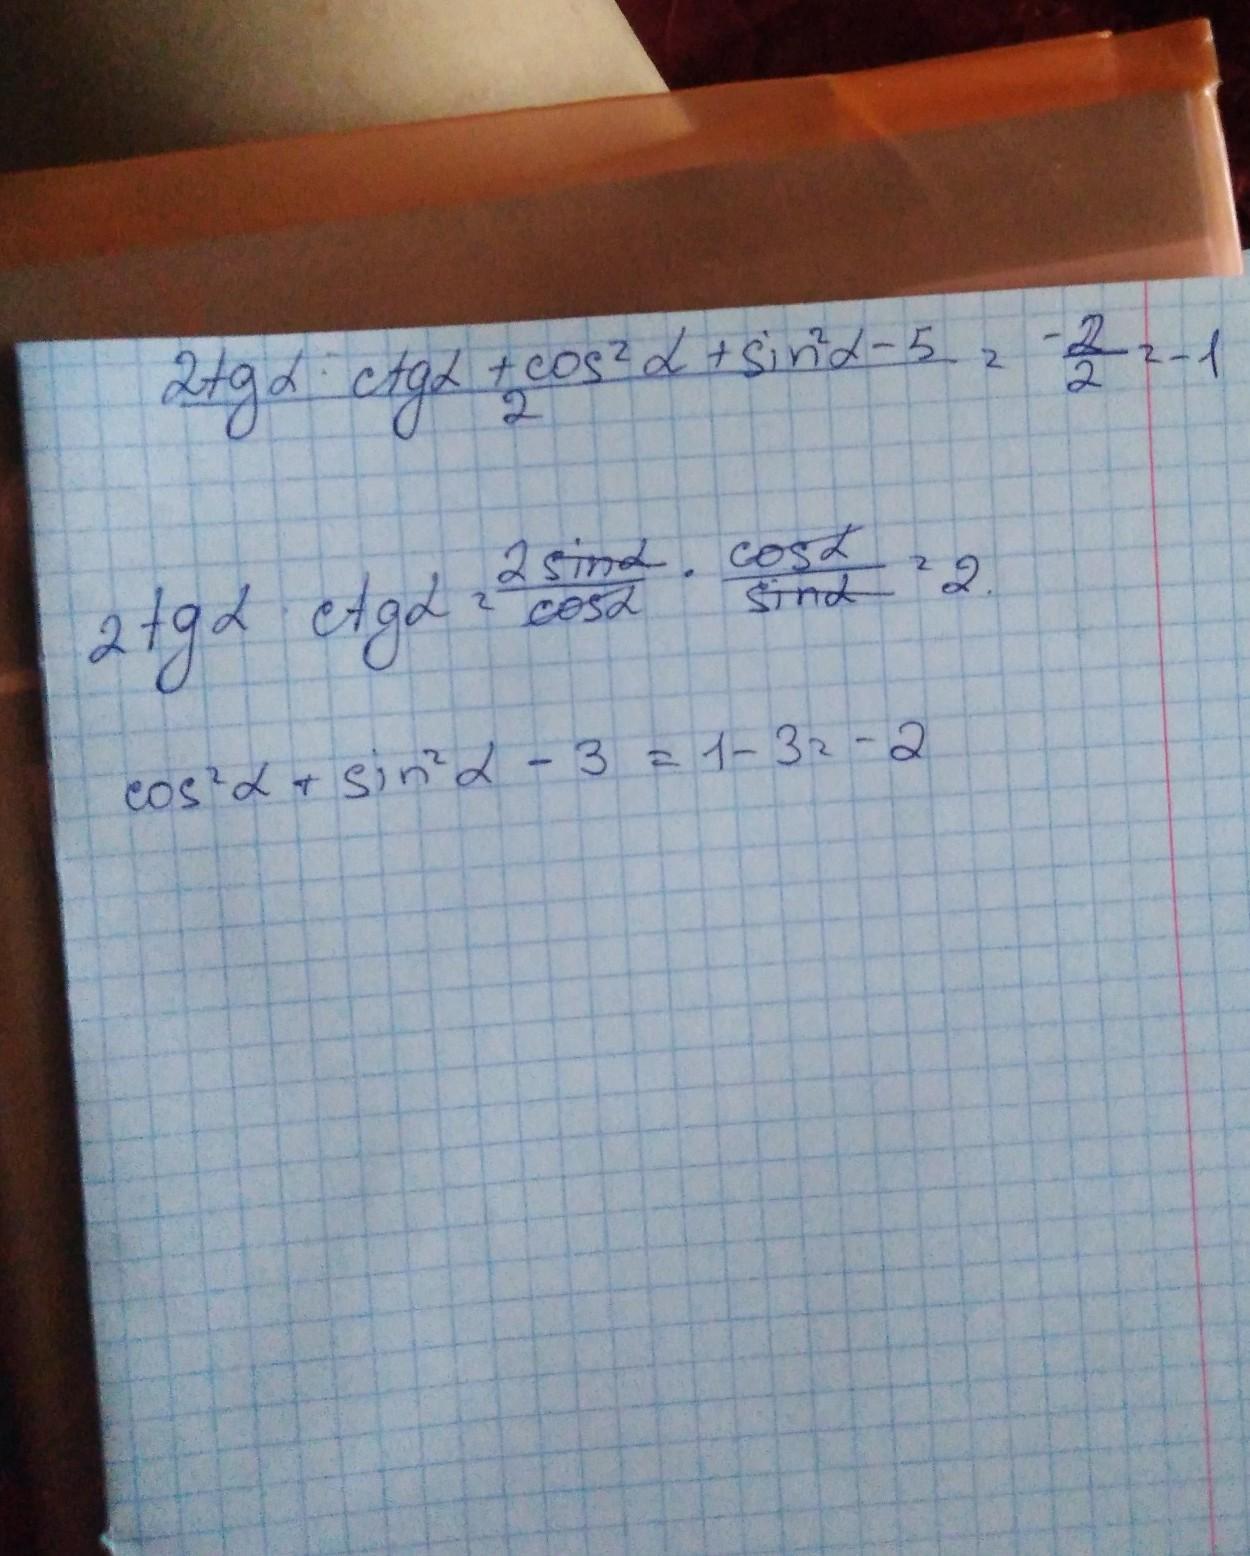 2tgα · ctgα + cos²α + sin²α - 5 / 2 = -2/2 = -1
2tgα · ctgα = 2sinα/cosα · cosα/sinα = 2.
cos²α + sin²α - 3 = 1 - 3 = -2